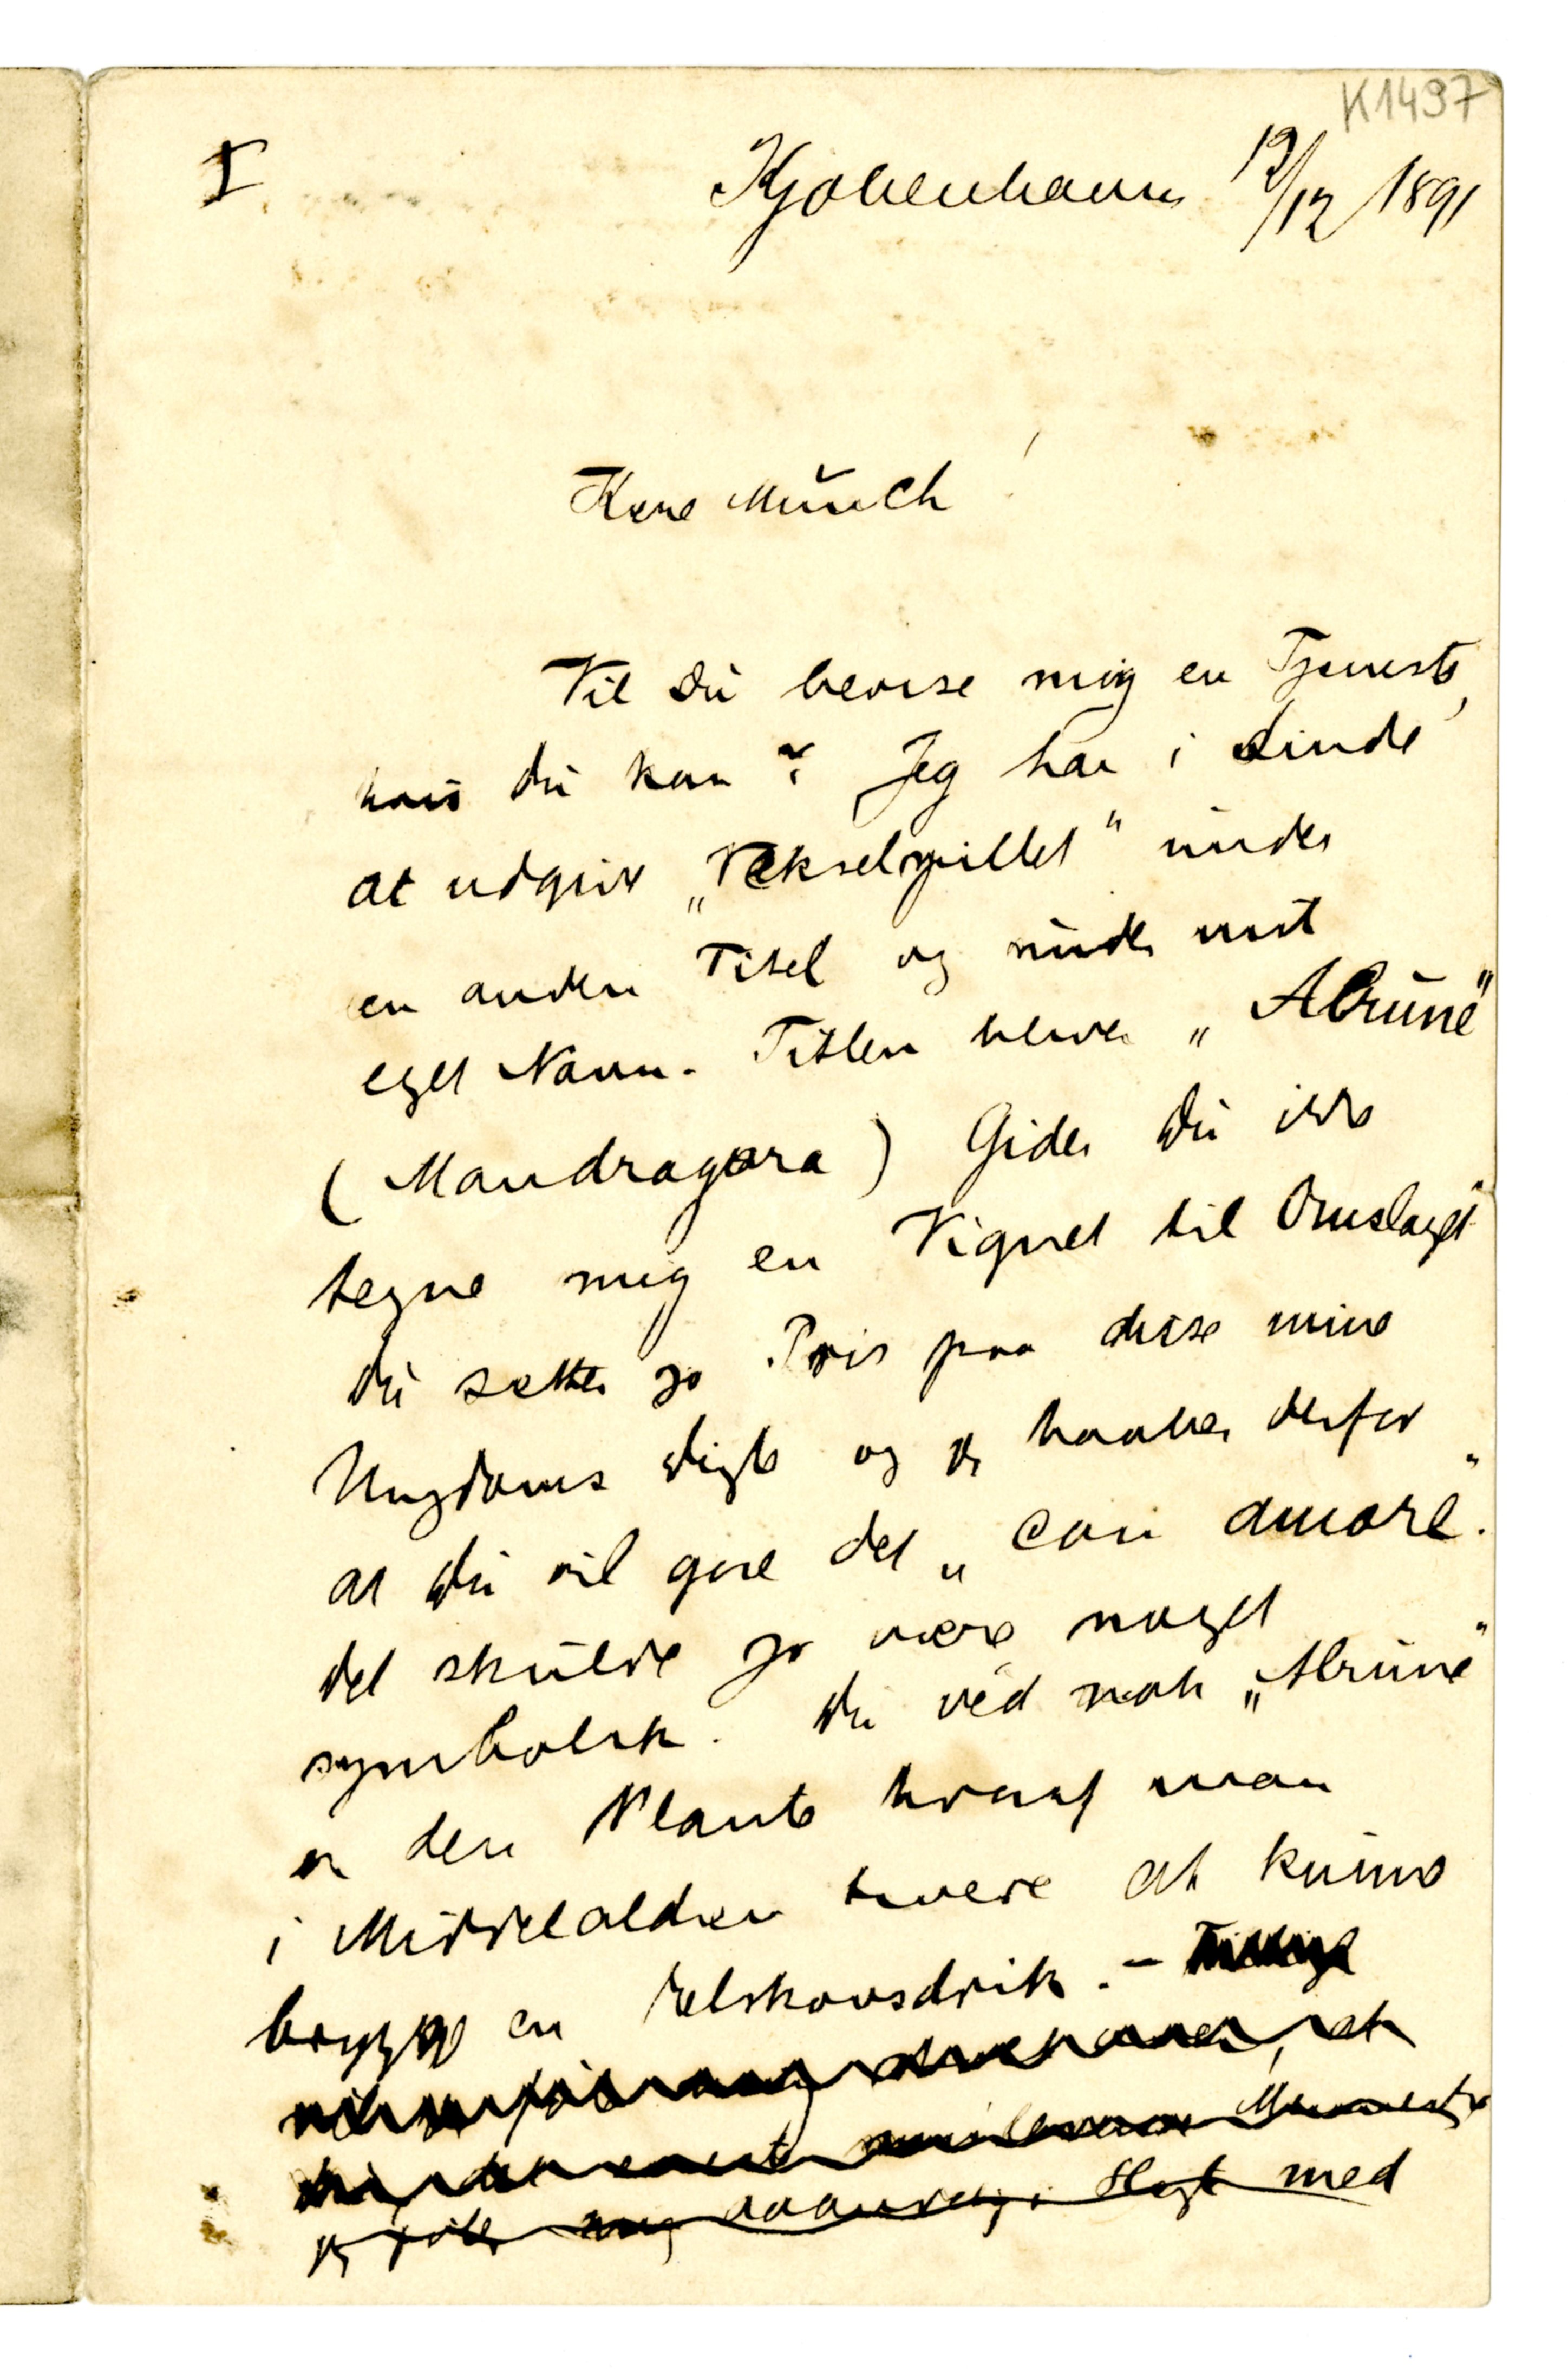 K1497
I
Kjøbenhavn 19/12 1891
Kære Munch!
Vil Du bevise mig en Tjeneste,
hvis Du kan? Jeg har i Sinde
at udgive „Vekselspillet" under
en anden Titel og under mit
eget Navn. Titlen bliver „Alrune"
(Mandragora) Gider Du ikke
tegne mig en Vignet til Omslaget
Du sætter jo Pris paa disse mine
Ungdoms digte og jeg haaber derfor
at Du vil gøre det „con amore".
Det skulde jo være noget
symbolsk. Du véd nok „Alrune"
er den Plante hvoraf man
i Middelalderen troede at kunne
brygge en Elskovsdrik. –
at
jeg føler mig aandelig i Slægt med